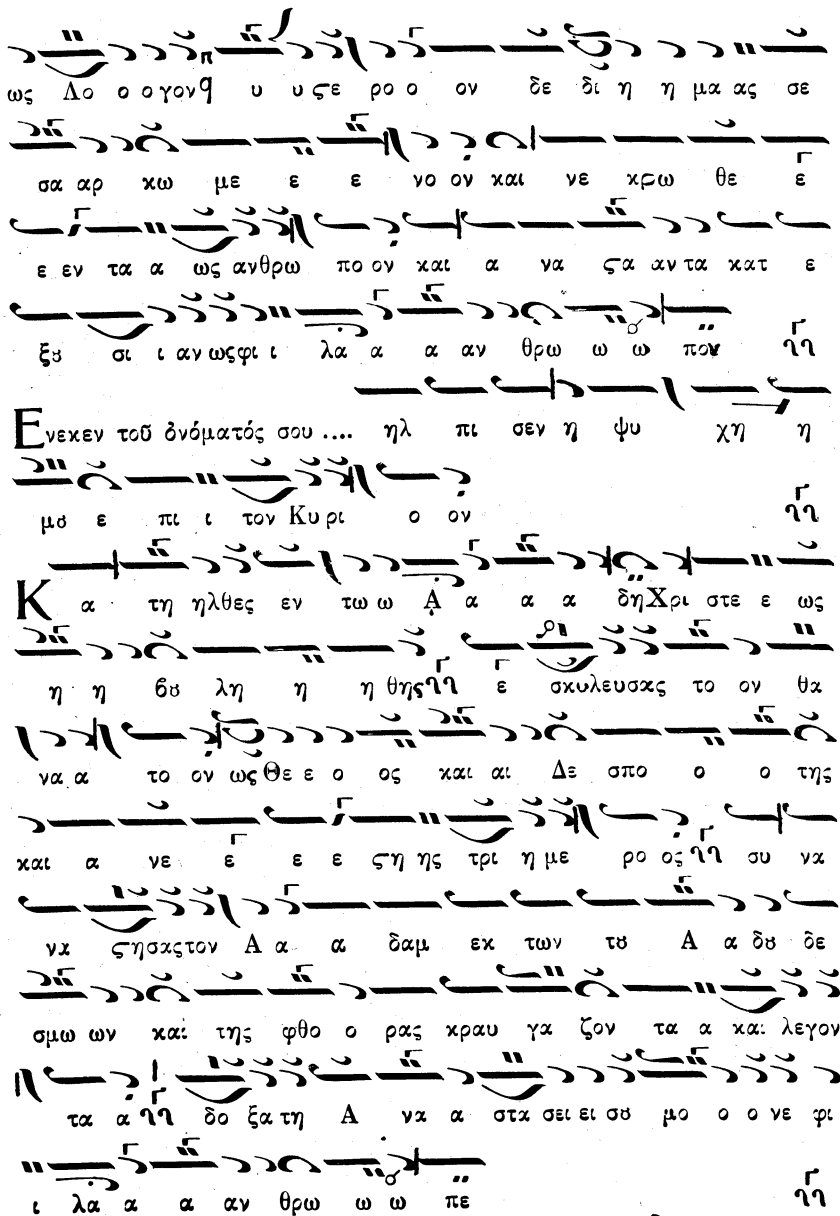 ως Λο ο ο γον υ υ ϛε ρο ο ον δε δι η η μα ας σε
σα αρ κω με ε ε νο ον και νε κρω θε ε
ε εν τα α ως ανθρω πο ον και α να ϛα αν τα κατ ε
ξȣ σι ι αν ως φι ι λα α α αν θρω ω ω πον
Ενεκεν τοῦ ὀνόματός σου .... ηλ πι σεν η ψυ χη η
μȣ ε πι ι τον Κυ ρι ο ον
Κ α τη ηλθες εν τω ω Α α α α δη Χρι στε ε ως
η η βȣ λη η η θης ε σκυλευσας το ον θα
να α το ον ως Θε ε ο ος και αι Δε σπο ο ο της
και α νε ε ε ε ϛη ης τρι η με ρο ος συ να
να ϛησας τον Α α α δαμ εκ των τȣ Α α δȣ δε
σμω ων και της φθο ο ρας κραυ γα ζον τα α και λεγον
τα α δο ξα τη Α να α στα σει ει σȣ μο ο ο νε φι
ι λα α α αν θρω ω ω πε